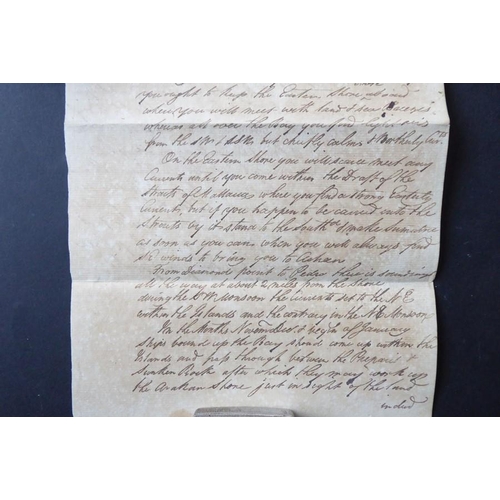 you ought to keep the Eastern Shore aboard
where you will meet with land & sea breezes
whereas all over the Bay you find light airs
from the SW & SSW but chiefly calms & Northerly Curr.ts
On the Eastern Shore you will scarce meet any
Currents until you come within the Draft of the
Straits of Malacca where you find a strong Easterly
Current, but if you happen to be carried into the
Straits by distance to the South.d make Sumatra
as soon as you can when you will always find
winds to bring you to Acheen
From Diamond point to Pedir there is sounding
all the way at about 2 miles from the shore
during the SW Monsoon the Currents set to the NE
within the Islands and the contrary in the NE Monsoon
In the Months Novem Dec.r & of January
Ships bound up the Bay should come up within the
Islands and pass through between the Preparis &
Sunken Rock after which they may work up
the Arakan Shore just in sight of the land